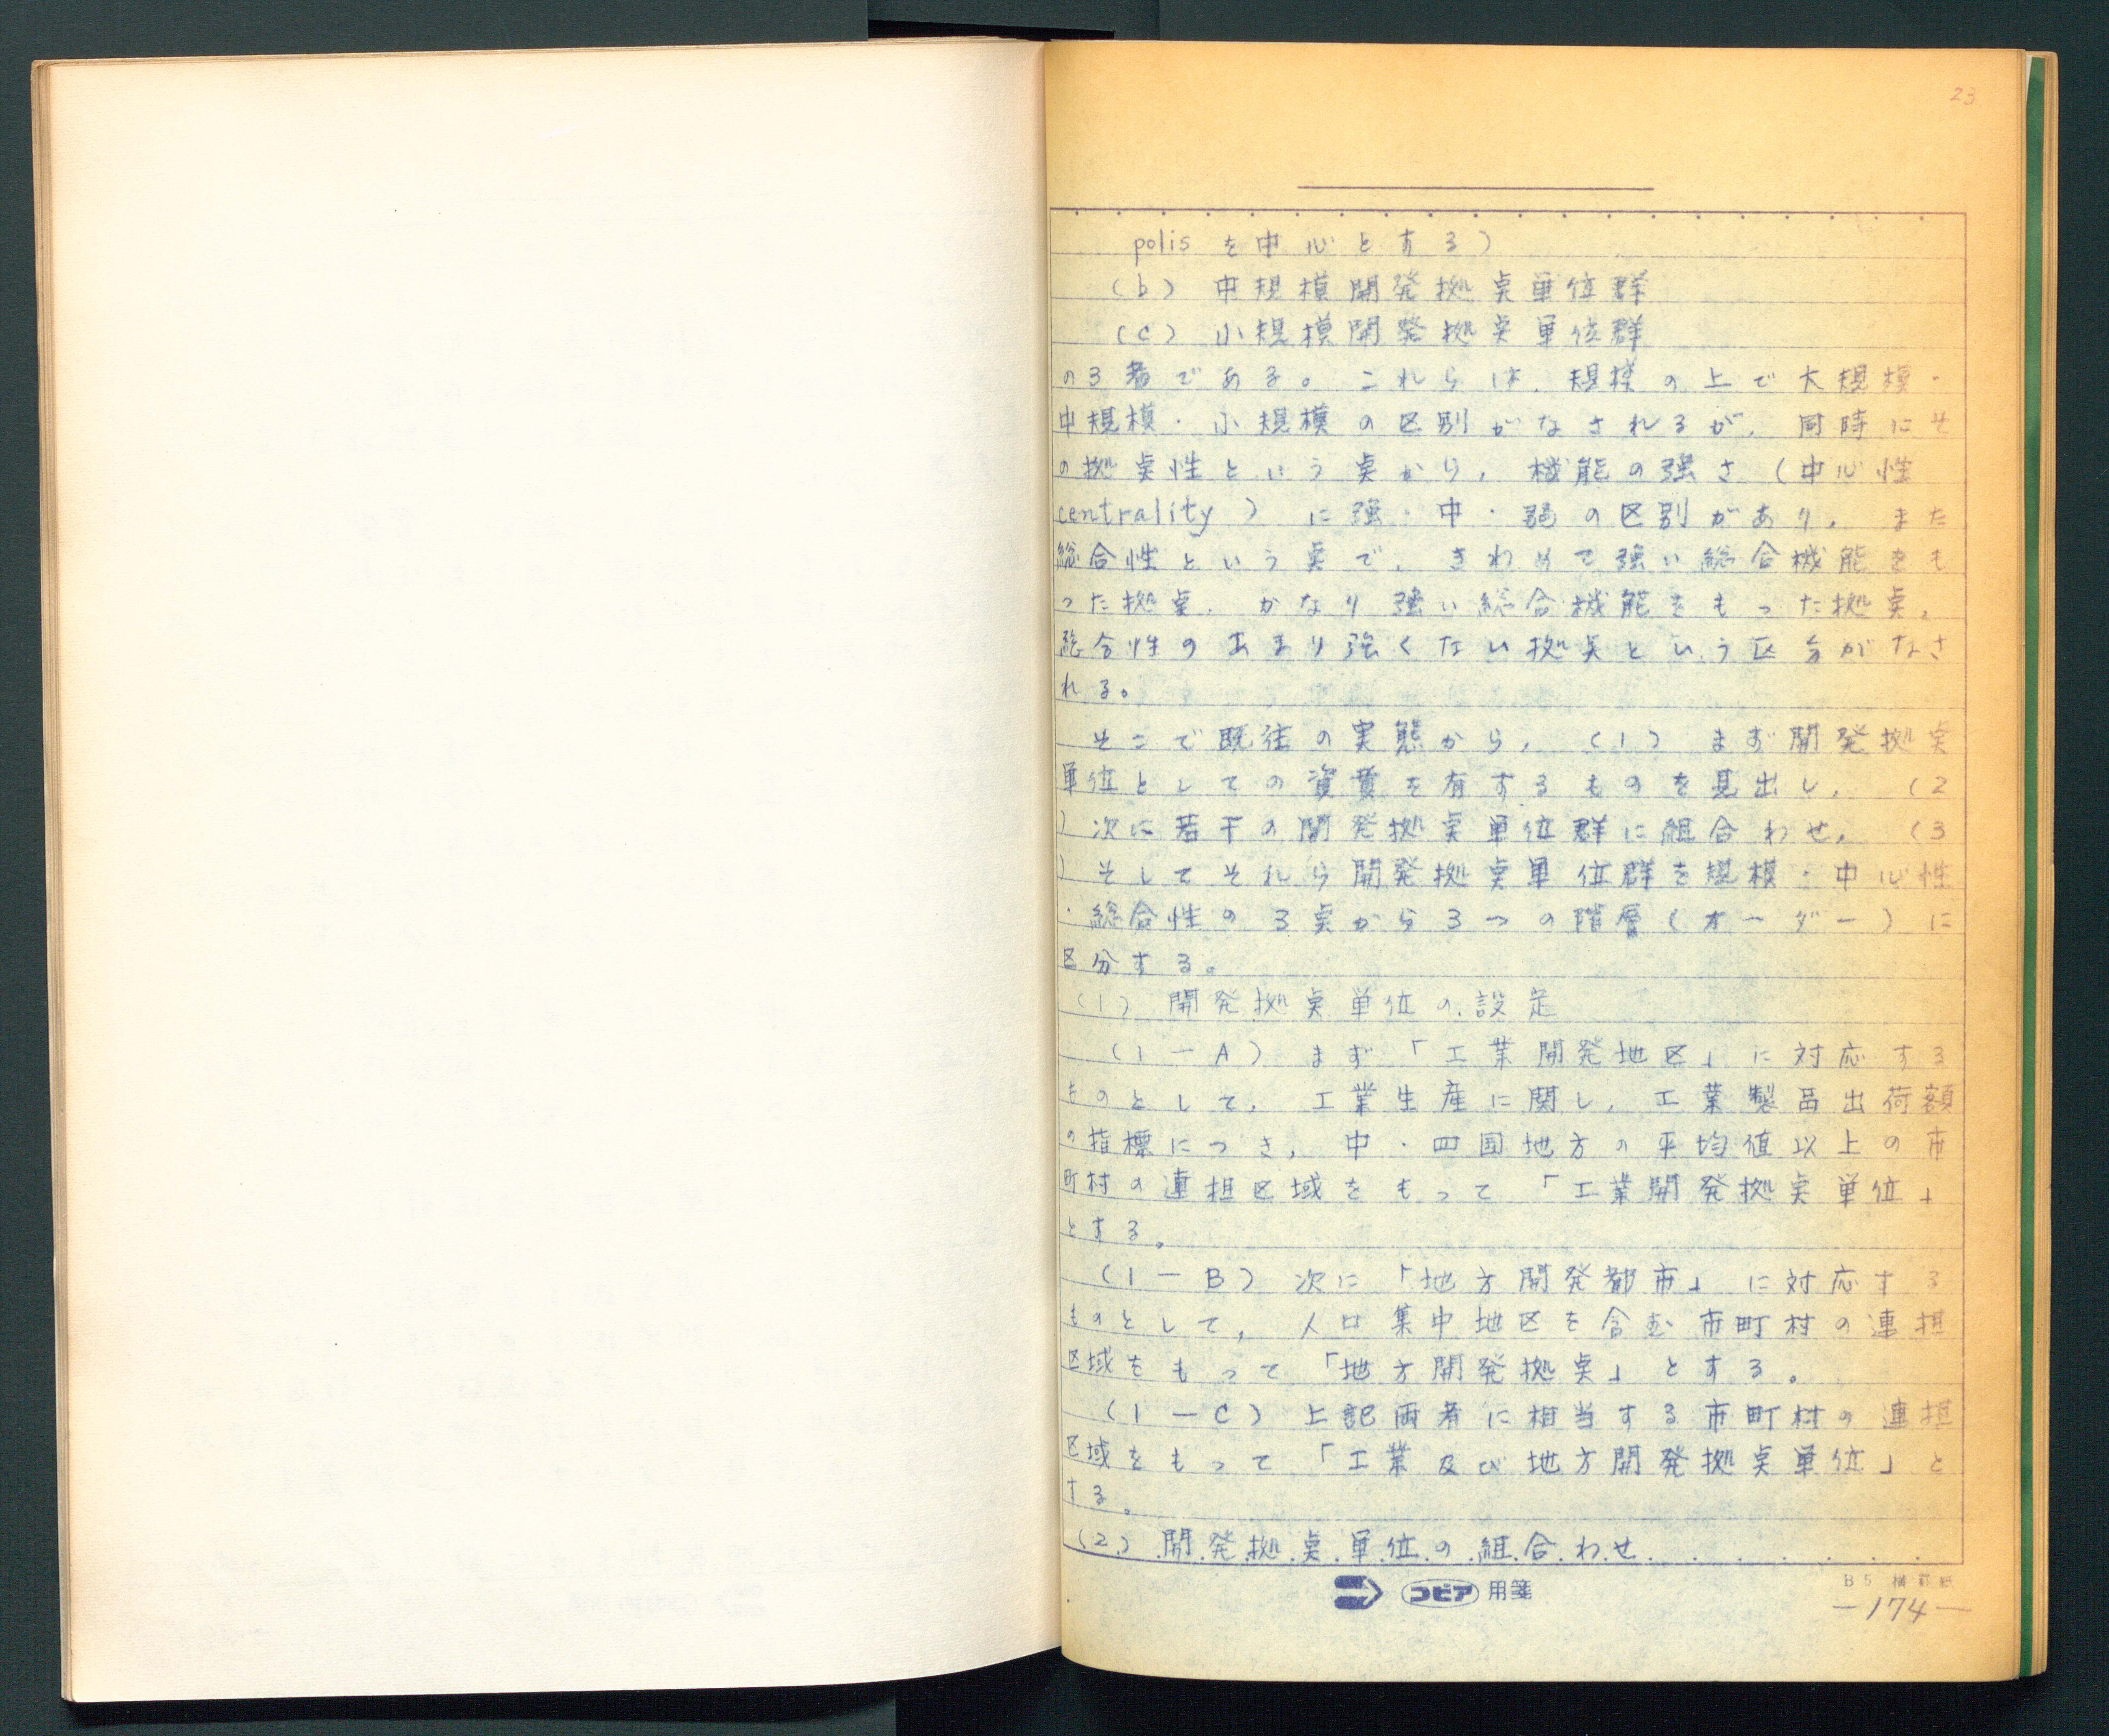 23
polis を中心とする)
(b) 中規模開発拠点単位群
(c) 小規模開発拠点単位群
の3者である。これらは、規模の上で大規模・
中規模・小規模の区別がなされるが、同時にそ
の拠点性という点から、機能の強さ(中心性
centrality)に強・中・弱の区別があり、また
総合性という点で、きわめて強い総合機能をも
った拠点、かなり強い総合機能をもった拠点、
総合性のあまり強くない拠点という区分がなさ
れる。
そこで既往の実態から、(1) まず開発拠点
単位としての資質を有するものを見出し、(2
) 次に若干の開発拠点単位群に組合わせ、(3
) そしてそれら開発拠点単位群を規模・中心性
・総合性の3点から3つの階層(オーダー)に
区分する。
(1) 開発拠点単位の設定
(1-A) まず「工業開発地区」に対応する
ものとして、工業生産に関し、工業製品出荷額
の指標につき、中・四国地方の平均値以上の市
町村の連担区域をもって「工業開発拠点単位」
とする。
(1-B) 次に「地方開発都市」に対応する
ものとして、人口集中地区を含む市町村の連担
区域をもって「地方開発拠点」とする。
(1-C) 上記両者に相当する市町村の連担
区域をもって「工業及び地方開発拠点単位」と
する。
(2) 開発拠点単位の組合わせ
コピア 用箋
B5 横罫
-174-